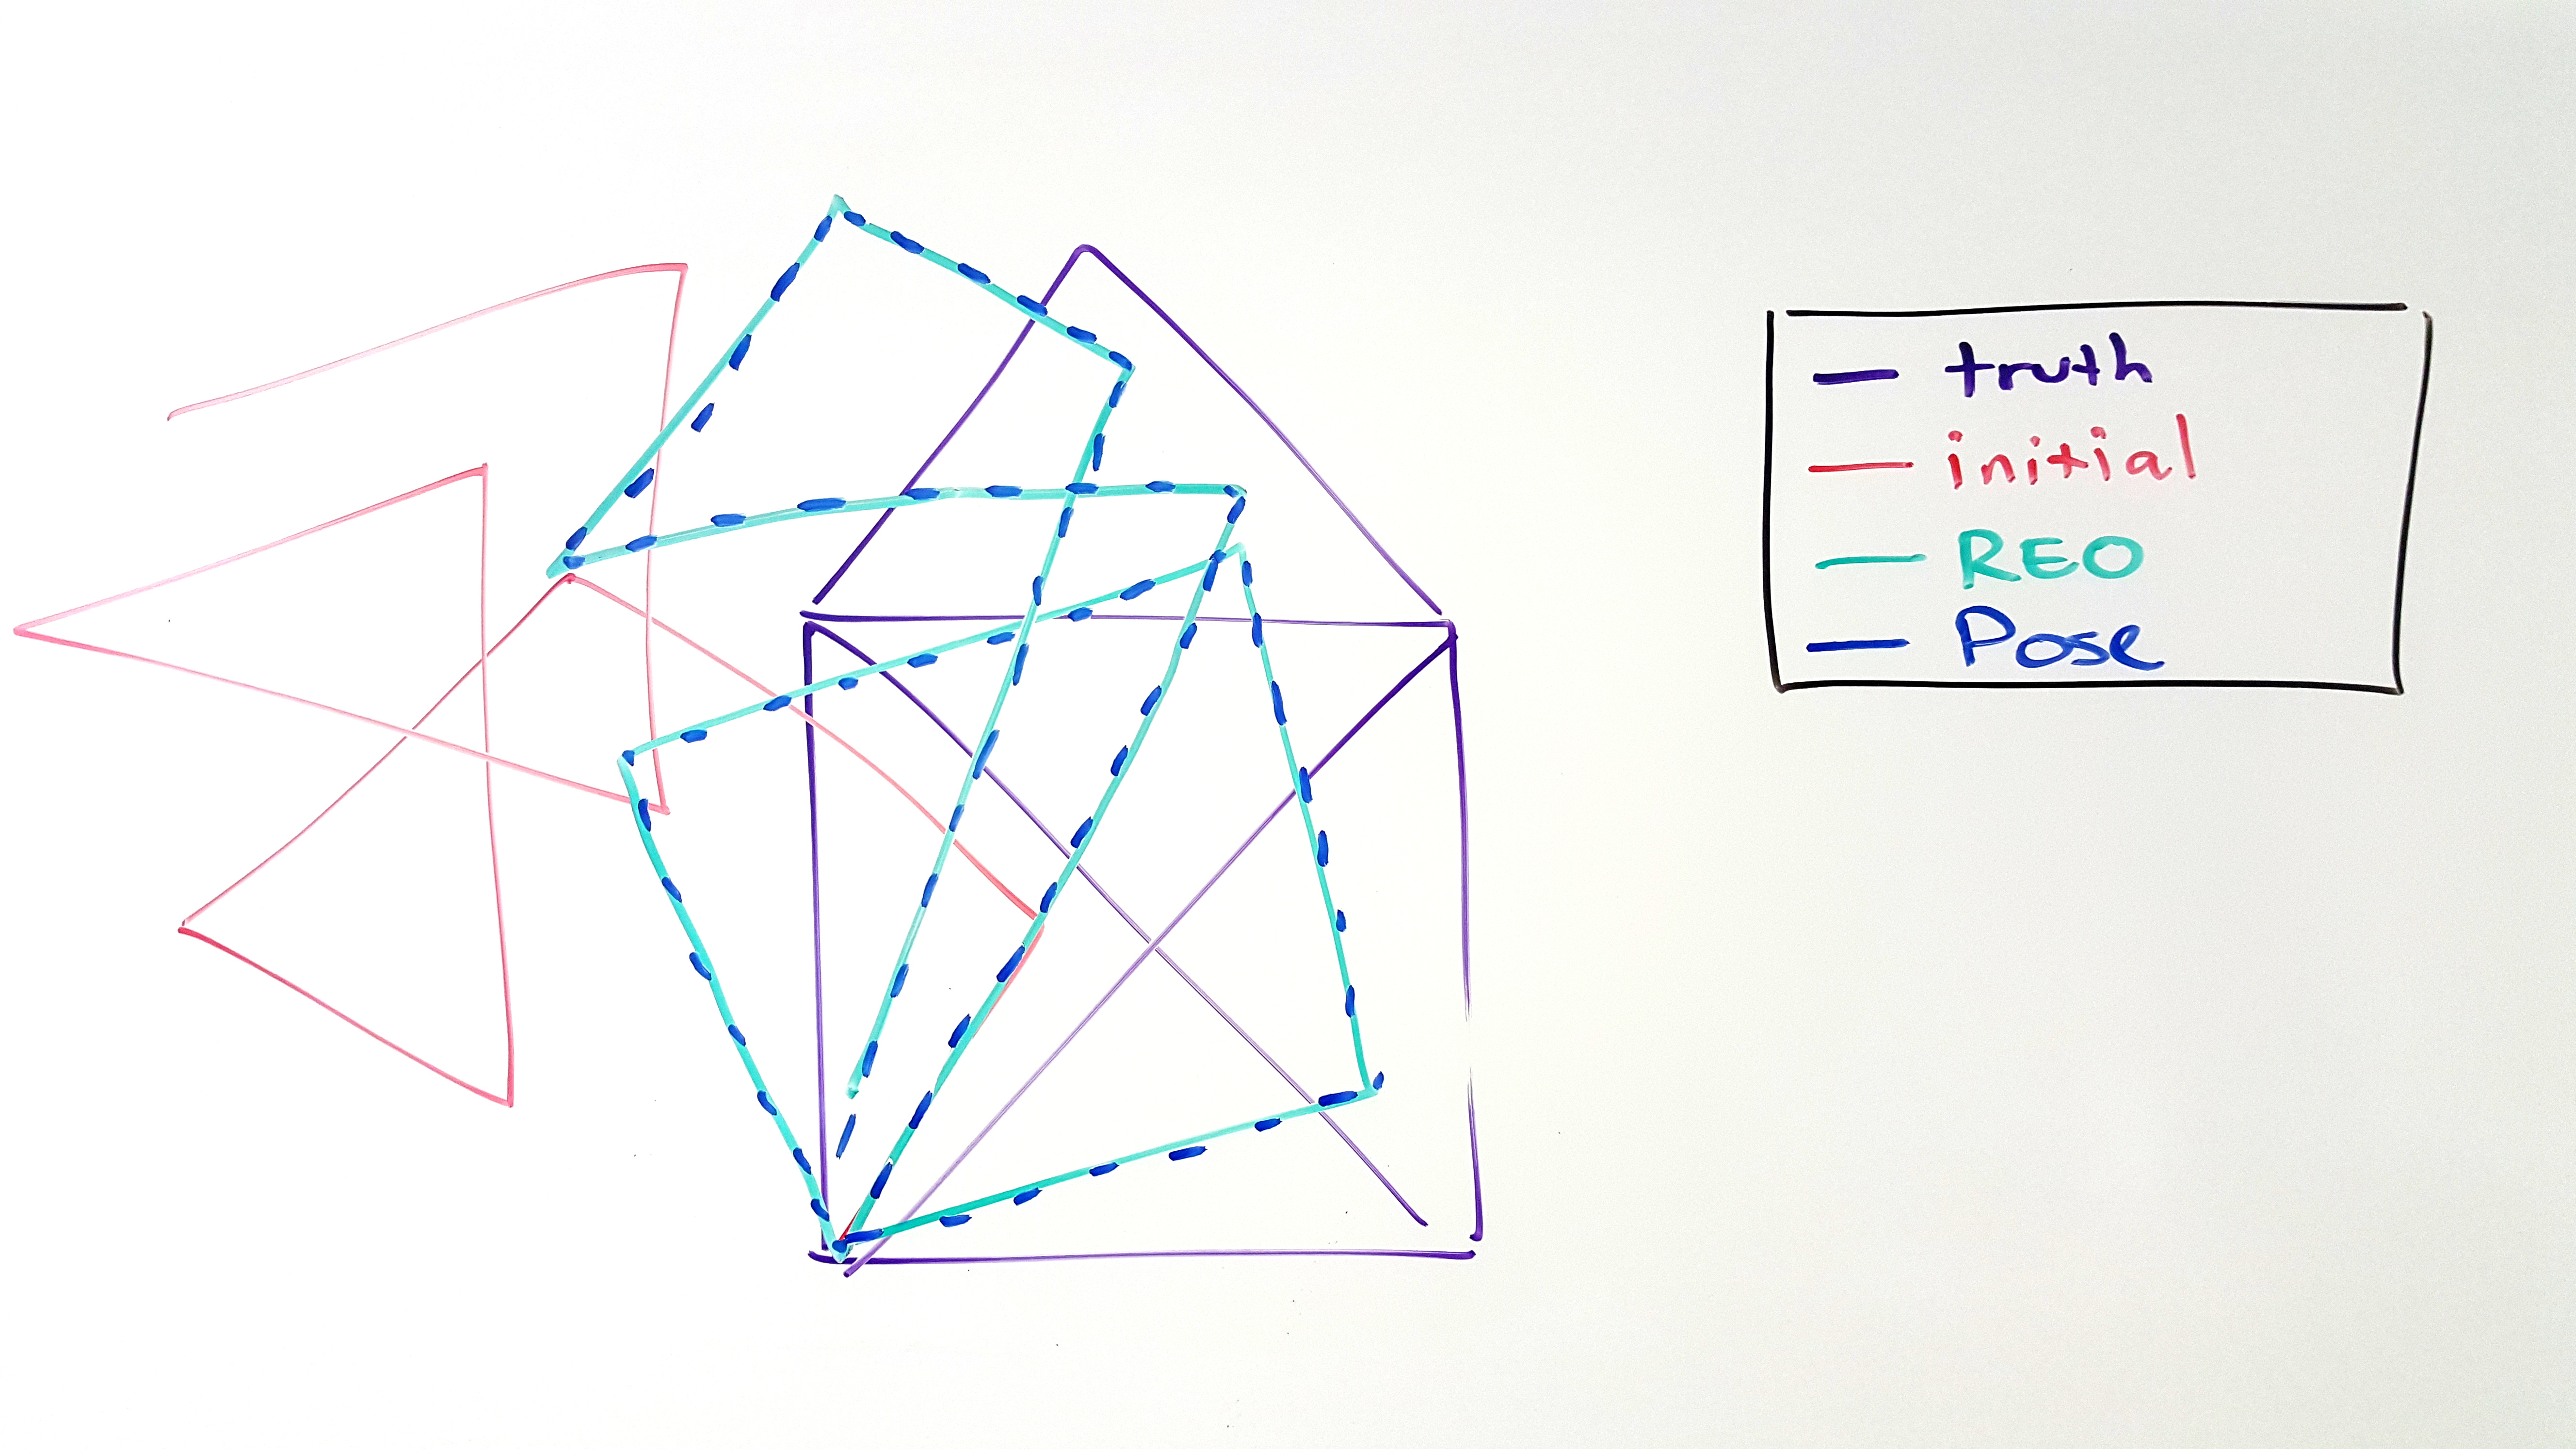 truth
initial
REO
Pose